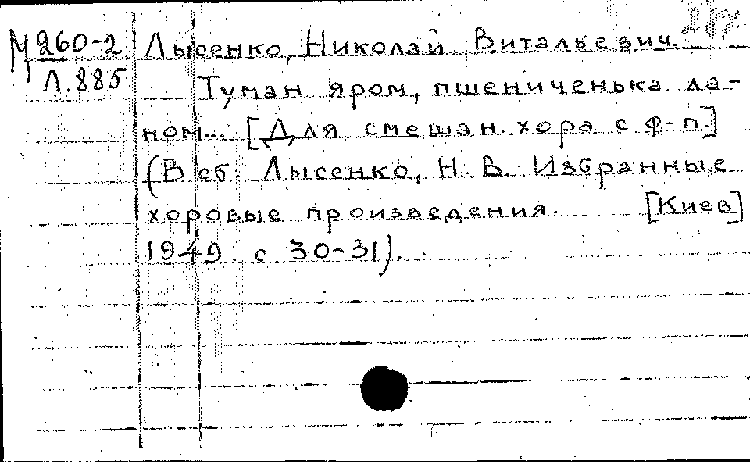 М 260-2 Лысенко, Николай Витальевич.
Л.885 Туман яром, пшениченька ла-
ном... [Для смешан. хора с ф-п.]
(В сб. Лысенко, Н. В. Избранные
хоровые произведения [Киев]
1949 с 30-31).